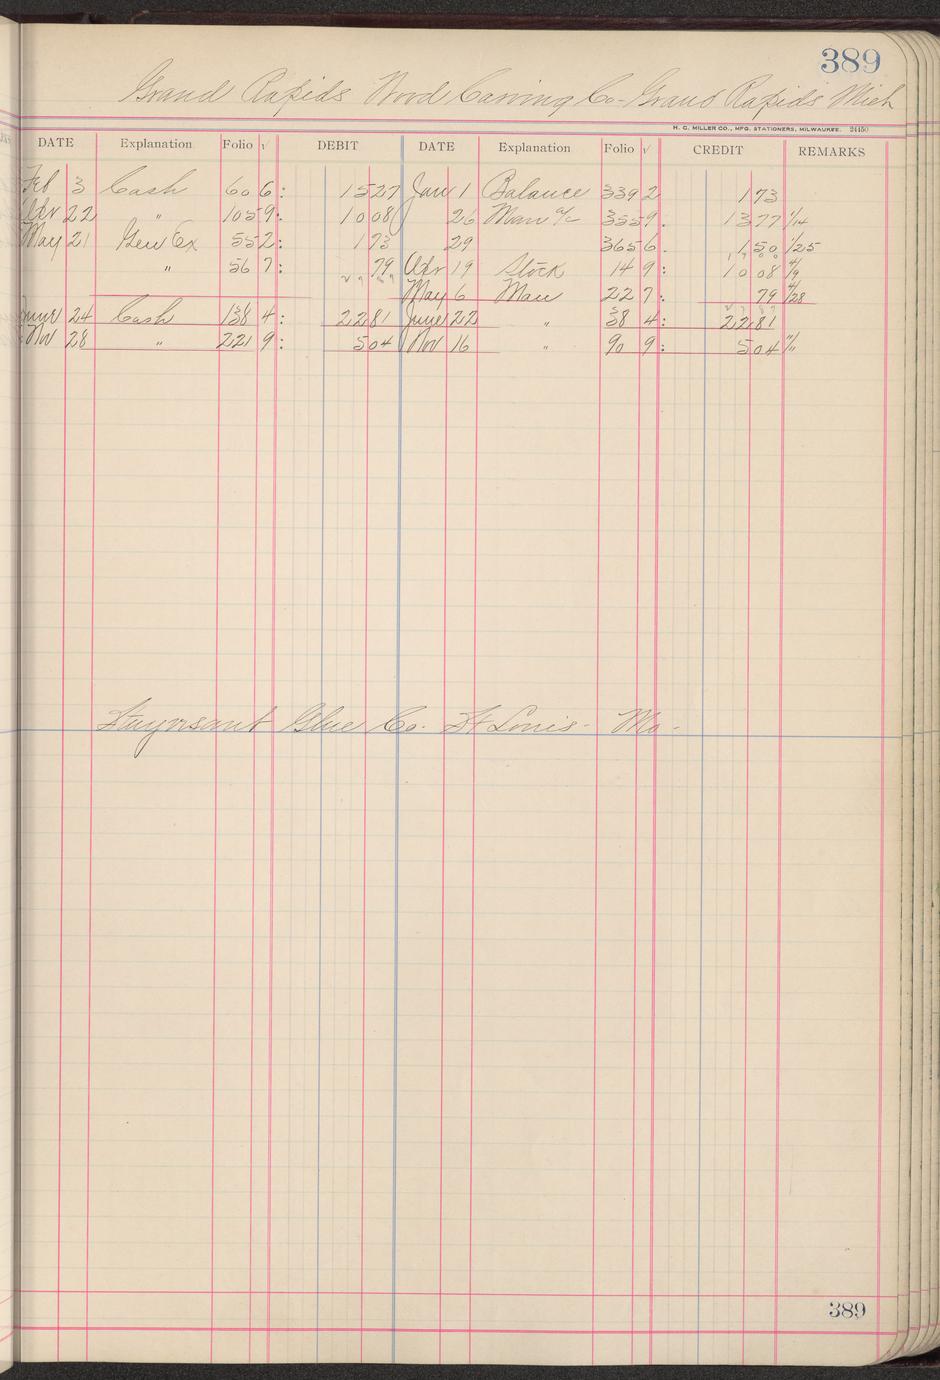 389
Grand Rapids Wood Carving Co - Grand Rapids Mich
H. C. MILLER CO., MFG. STATIONERS, MILWAUKEE. 24450
DATE Explanation Folio √ DEBIT DATE Explanation Folio √ CREDIT REMARKS
Feb 3 Cash 60 6: 1527 Jan 1 Balance 339 2 173
Apr 22 " 105 9: 1008 26 Man a/c 355 9. 1377 1/14
May 21 Gen Ex 55 2: 173 29 365 6. 150 1/25
" 56 7: 79 Apr 19 Stock 14 9: 1008 4/9
May 6 Man 22 7: 79 4/28
June 24 Cash 138 4: 2281 June 22 " 38 4: 2281
Nov 28 " 221 9: 504 Nov 16 " 90 9: 504 11/11
Stuyvesant Glue Co. St Louis - Mo -
389